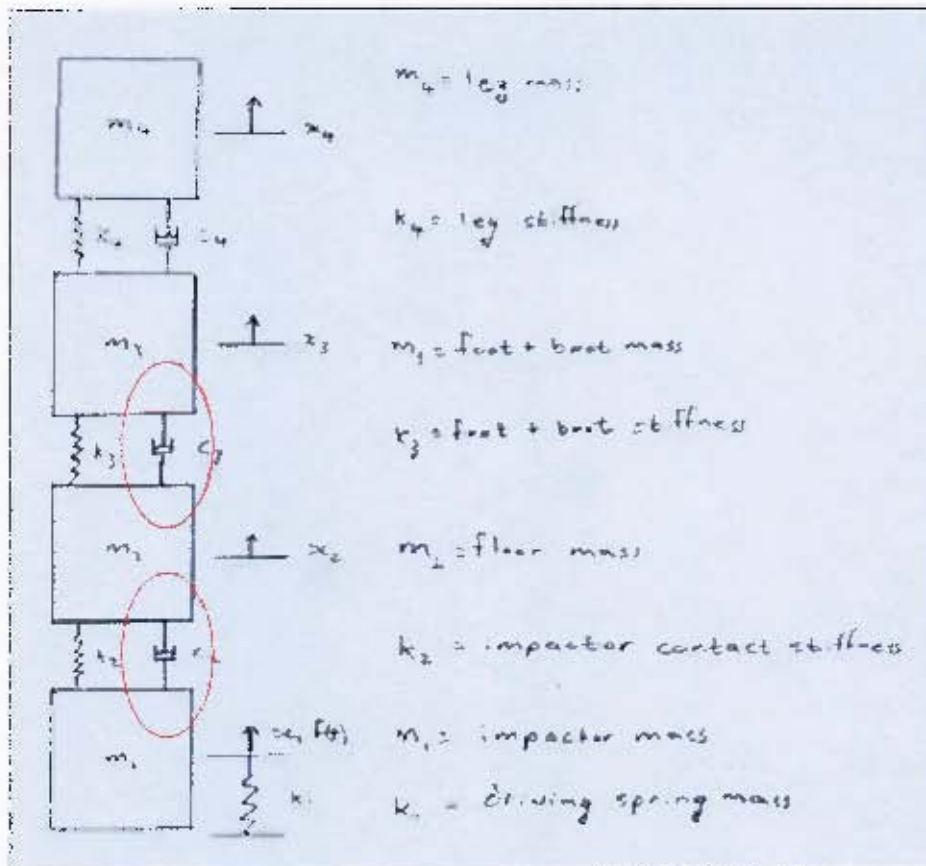 m4 x4 m4 = leg mass
k4 c4 k4 = leg stiffness
m3 x3 m3 = foot + boot mass
k3 c3 k3 = foot + boot stiffness
m2 x2 m2 = floor mass
k2 c2 k2 = impactor contact stiffness
m1 x1 f(t) m1 = impactor mass
k1 k1 = driving spring mass